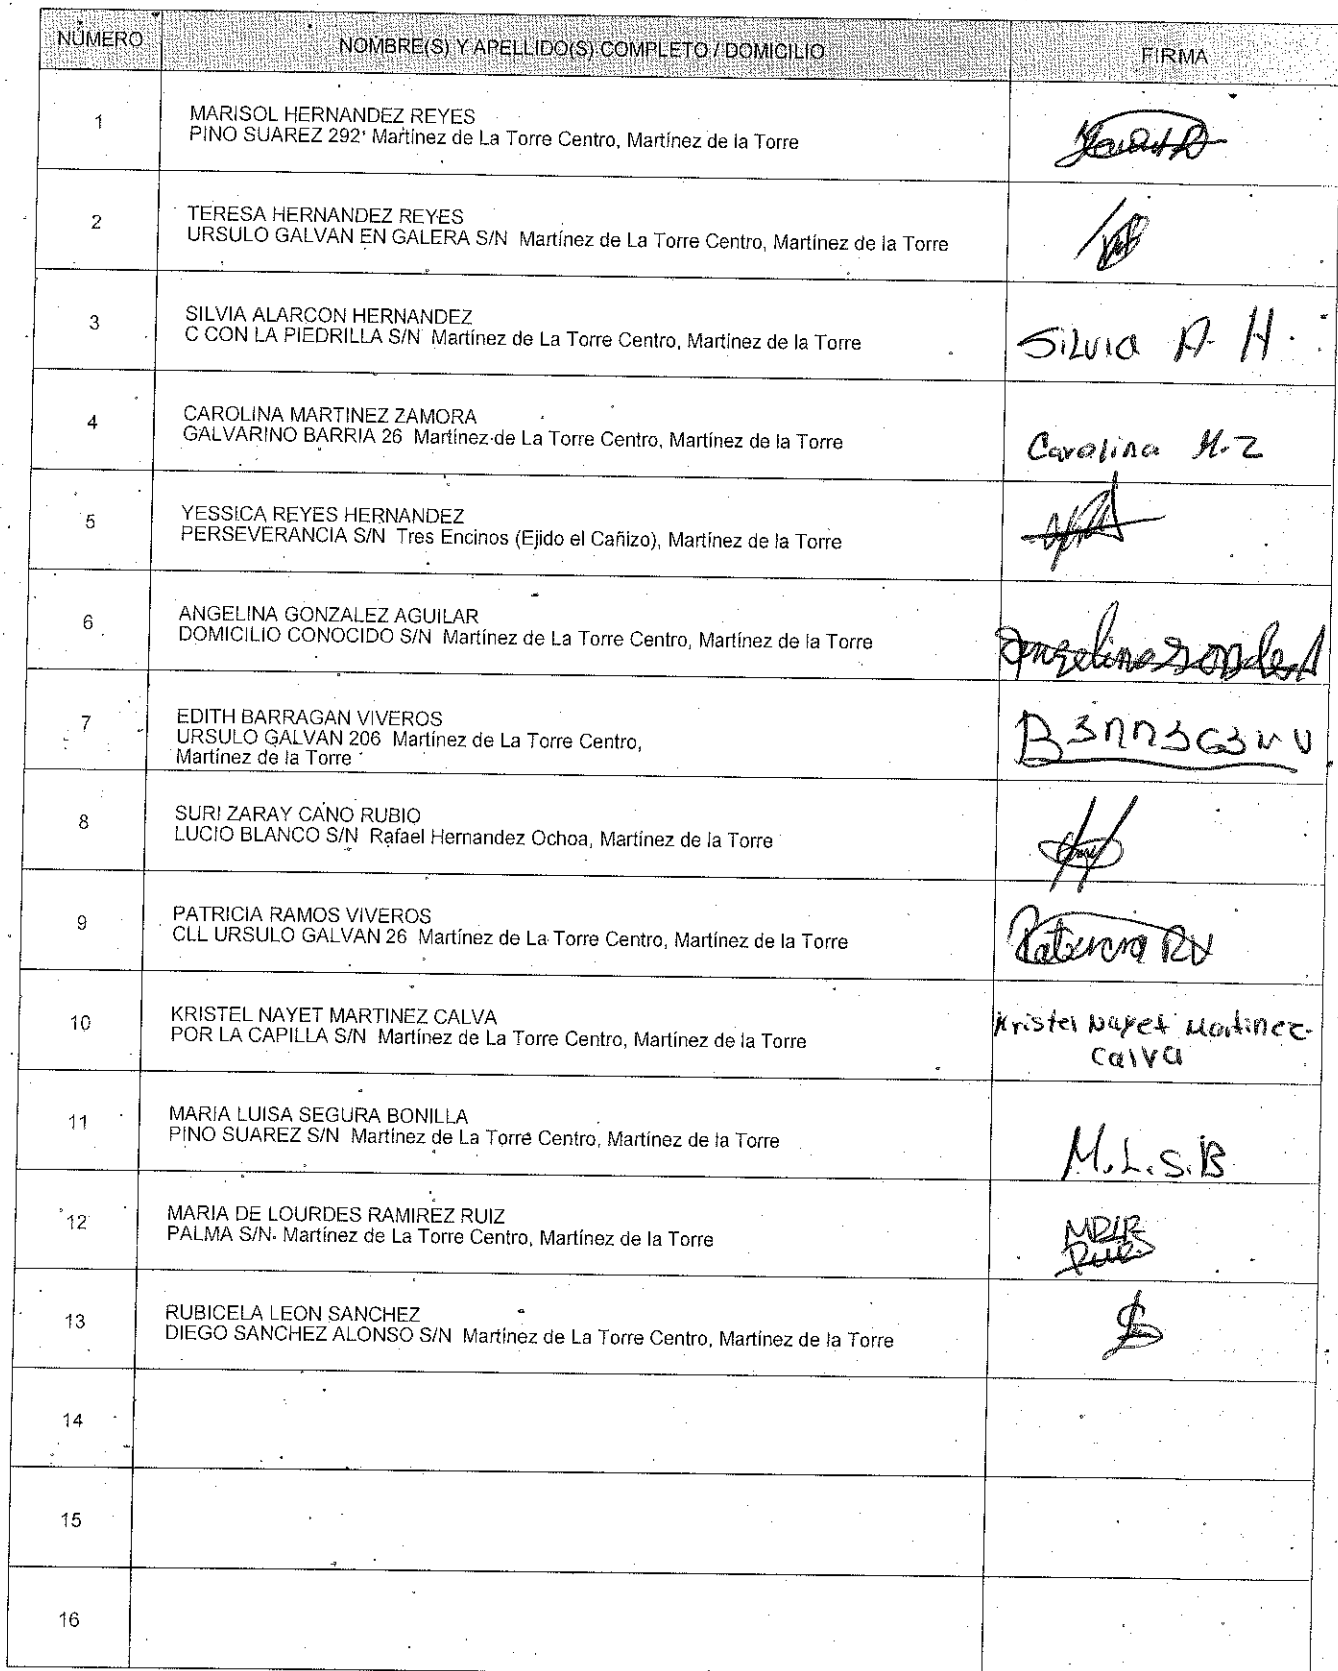 NÚMERO NOMBRE(S) Y APELLIDO(S) COMPLETO / DOMICILIO FIRMA
1 MARISOL HERNANDEZ REYES
PINO SUAREZ 292 Martínez de La Torre Centro, Martínez de la Torre
2 TERESA HERNANDEZ REYES
URSULO GALVAN EN GALERA S/N Martínez de La Torre Centro, Martínez de la Torre
3 SILVIA ALARCON HERNANDEZ
C CON LA PIEDRILLA S/N Martínez de La Torre Centro, Martínez de la Torre
Silvia A. H.
4 CAROLINA MARTINEZ ZAMORA
GALVARINO BARRIA 26 Martínez de La Torre Centro, Martínez de la Torre
Carolina M. Z
5 YESSICA REYES HERNANDEZ
PERSEVERANCIA S/N Tres Encinos (Ejido el Cañizo), Martínez de la Torre
6 ANGELINA GONZALEZ AGUILAR
DOMICILIO CONOCIDO S/N Martínez de La Torre Centro, Martínez de la Torre
7 EDITH BARRAGAN VIVEROS
URSULO GALVAN 206 Martínez de La Torre Centro,
Martínez de la Torre
8 SURI ZARAY CANO RUBIO
LUCIO BLANCO S/N Rafael Hernandez Ochoa, Martínez de la Torre
9 PATRICIA RAMOS VIVEROS
CLL URSULO GALVAN 26 Martínez de La Torre Centro, Martínez de la Torre
Patricia RV
10 KRISTEL NAYET MARTINEZ CALVA
POR LA CAPILLA S/N Martínez de La Torre Centro, Martínez de la Torre
Kristel Nayet Martinez
Calva
11 MARIA LUISA SEGURA BONILLA
PINO SUAREZ S/N Martínez de La Torre Centro, Martínez de la Torre
M.L.S.B
12 MARIA DE LOURDES RAMIREZ RUIZ
PALMA S/N Martínez de La Torre Centro, Martínez de la Torre
13 RUBICELA LEON SANCHEZ
DIEGO SANCHEZ ALONSO S/N Martínez de La Torre Centro, Martínez de la Torre
14
15
16